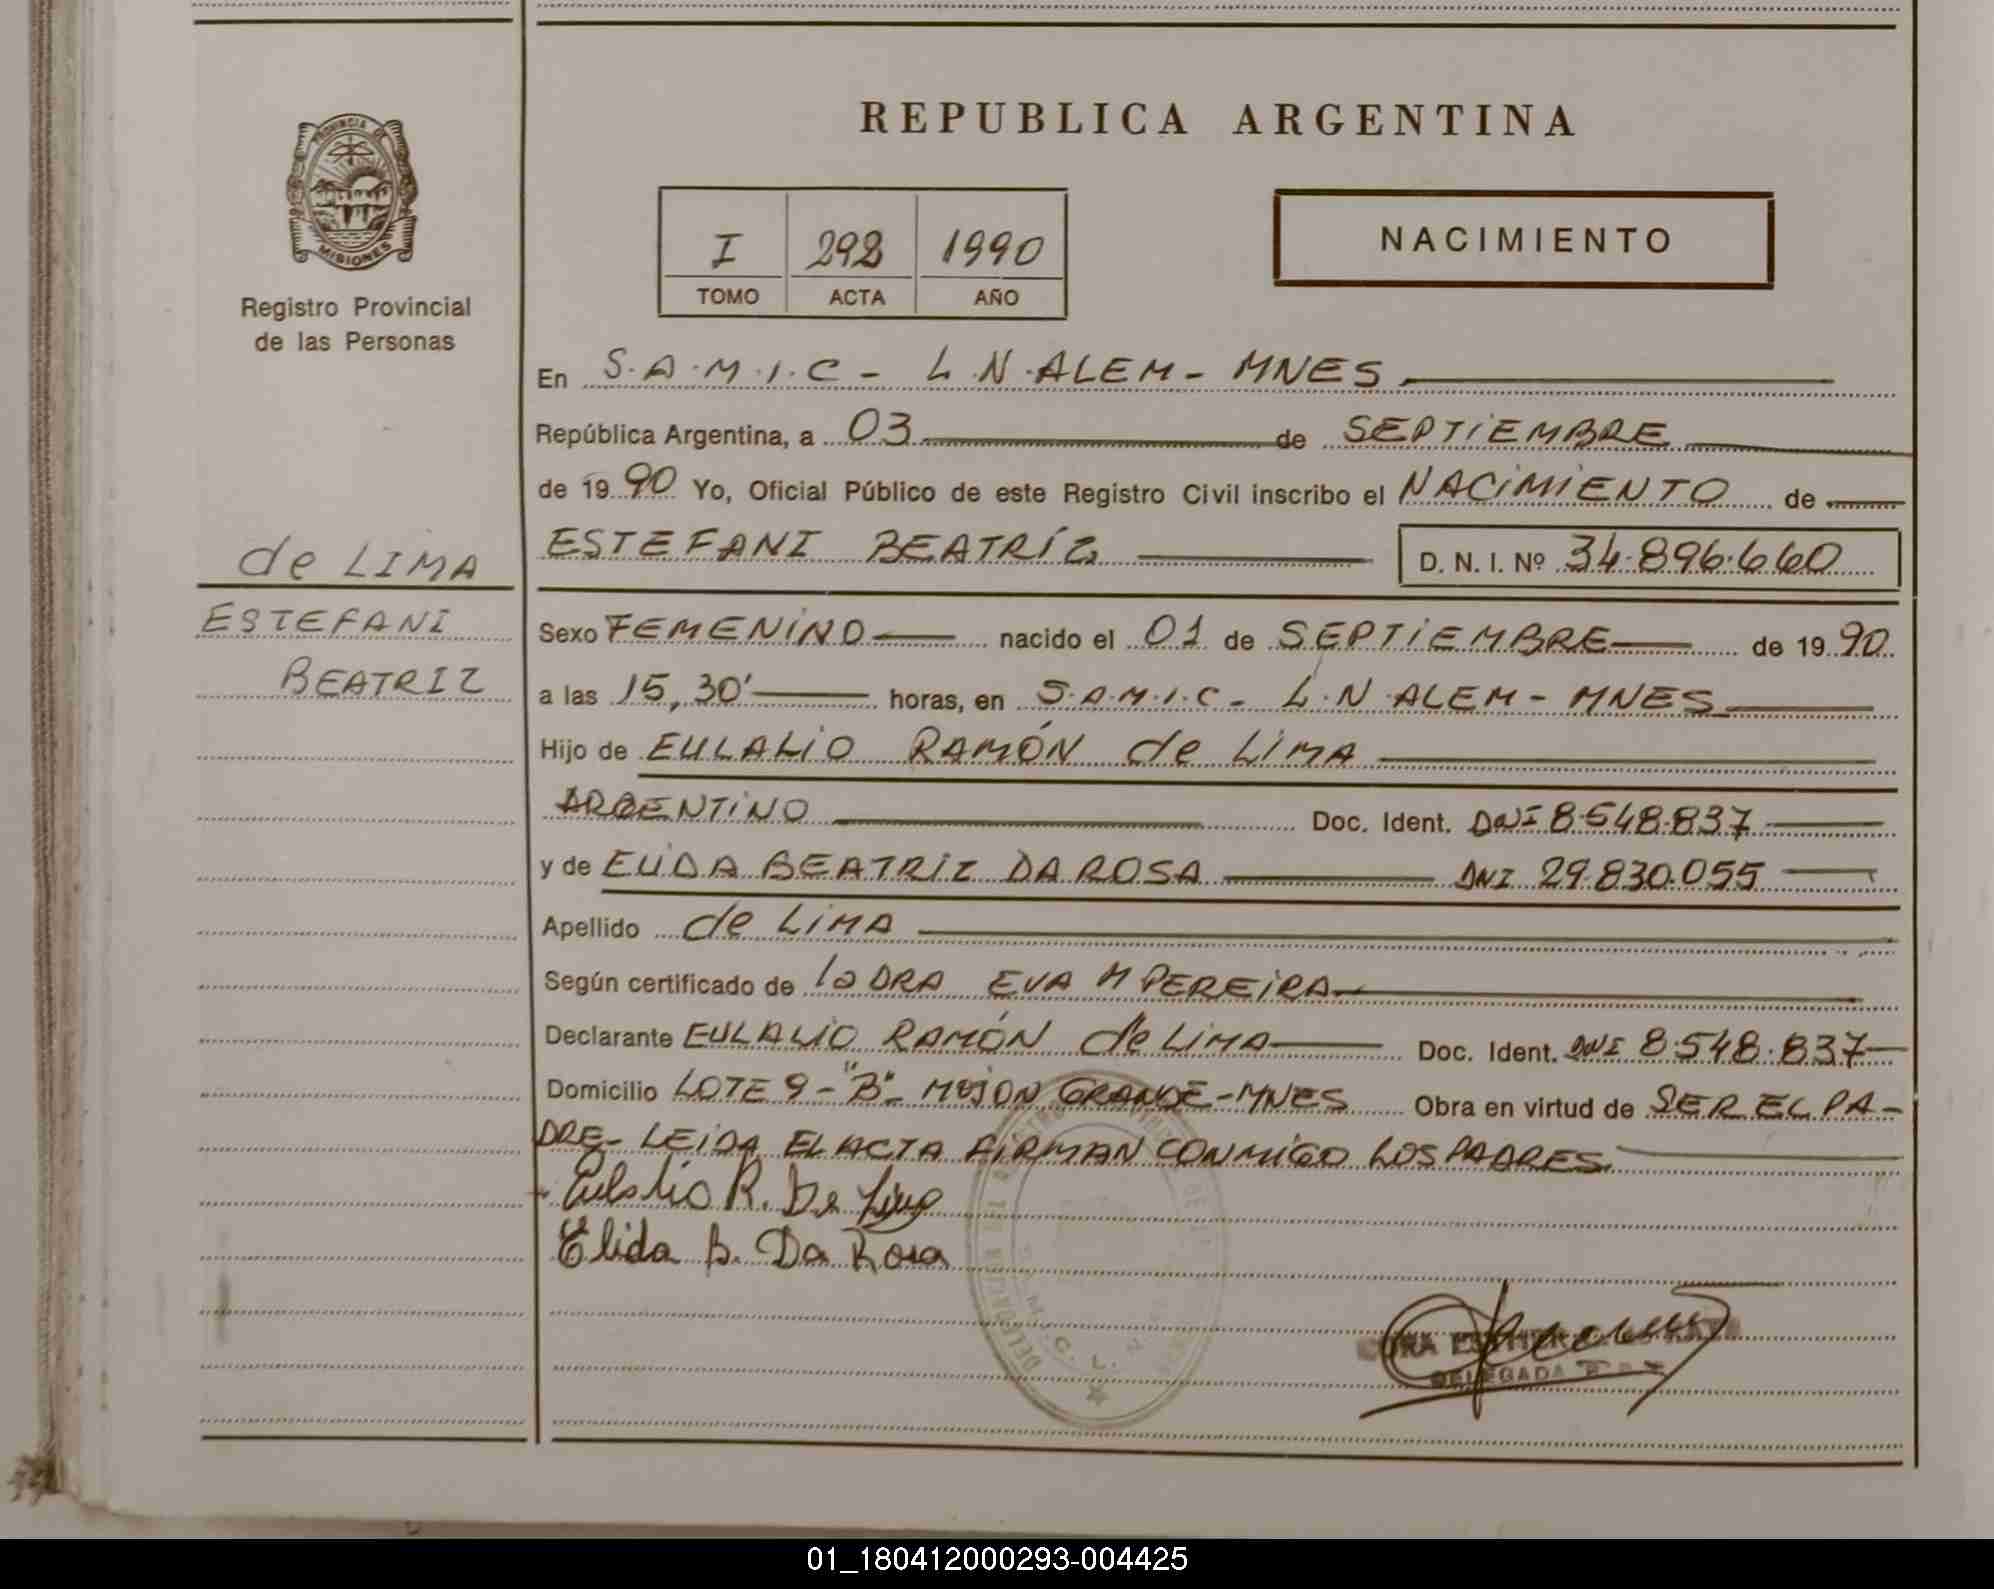 REPUBLICA ARGENTINA
PROVINCIA DE
MISIONES
Registro Provincial
de las Personas
I 292 1990
TOMO ACTA AÑO
NACIMIENTO
En S.A.M.I.C - L.N.ALEM - MNES
República Argentina, a 03 de SEPTIEMBRE
de 1990 Yo, Oficial Público de este Registro Civil inscribo el NACIMIENTO de
ESTEFANI BEATRÍZ D. N. I. Nº 34.896.660
de LIMA
ESTEFANI
BEATRIZ
Sexo FEMENINO nacido el 01 de SEPTIEMBRE de 1990
a las 15,30' horas, en S.A.M.I.C - L.N ALEM - MNES
Hijo de EULALIO RAMÓN de LIMA
ARGENTINO Doc. Ident. DNI 8.548.837
y de ELIDA BEATRIZ DA ROSA DNI 29.830.055
Apellido de LIMA
Según certificado de la DRA EVA M PEREIRA
Declarante EULALIO RAMÓN de LIMA Doc. Ident. DNI 8.548.837
Domicilio LOTE 9-"B"- MOJON GRANDE-MNES Obra en virtud de SER EL PA-
DRE- LEIDA EL ACTA FIRMAN CONMIGO LOS PADRES.
Eulalio R. De Lima
Elida B. Da Rosa
DELEGADA
01_180412000293-004425